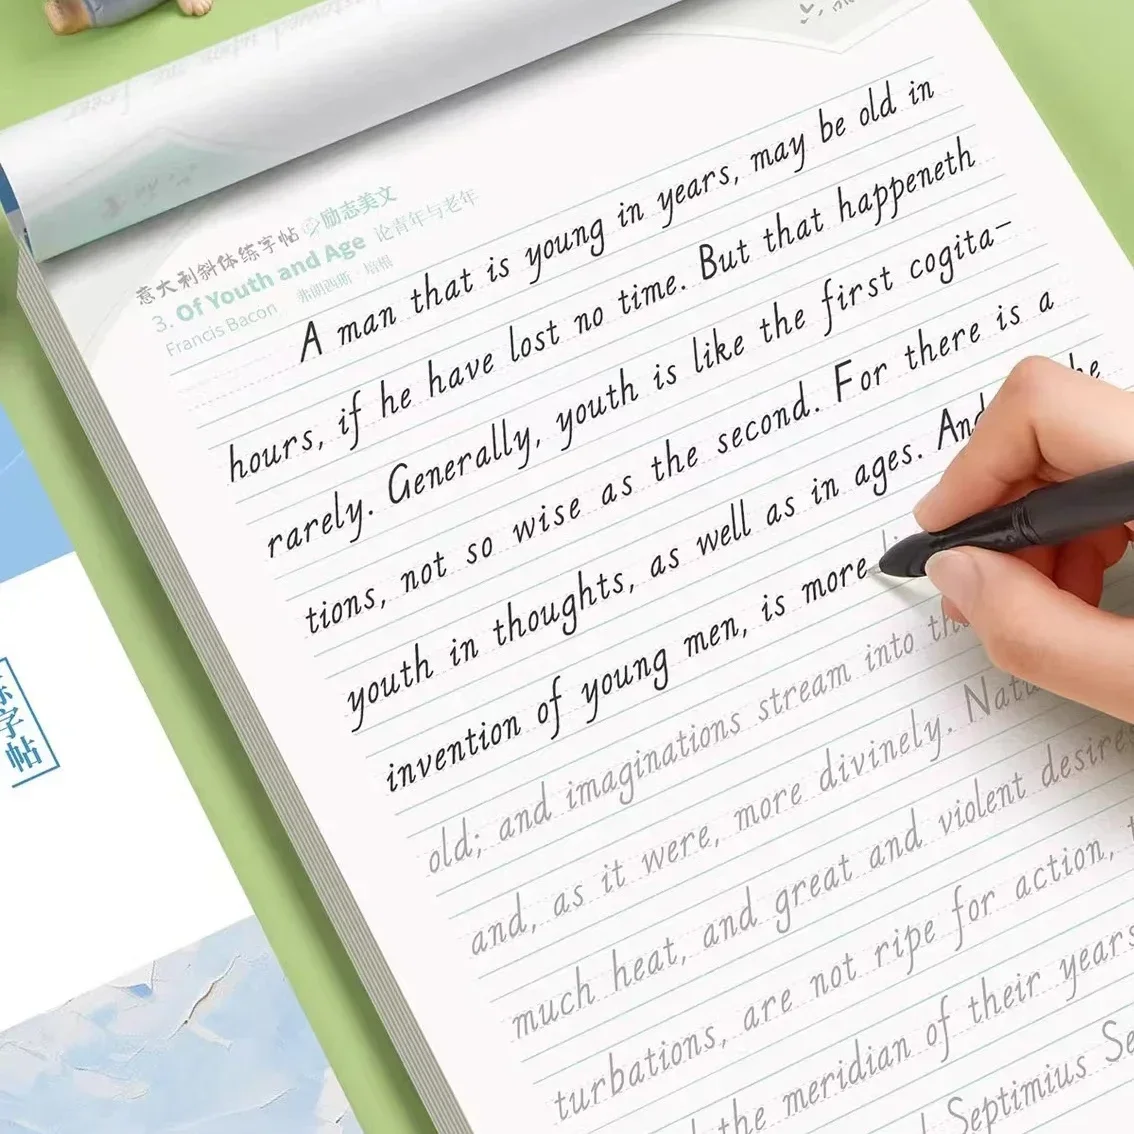 意大利斜体练字帖 励志美文
3. Of Youth and Age 论青年与老年
Francis Bacon 弗朗西斯·培根
A man that is young in years, may be old in
hours, if he have lost no time. But that happeneth
rarely. Generally, youth is like the first cogita-
tions, not so wise as the second. For there is a
youth in thoughts, as well as in ages. And he
invention of young men, is more
old; and imaginations stream into
and, as it were, more divinely.
much heat, and great and violent desires
turbations, are not ripe for action,
the meridian of their years
Septimius Se
字帖